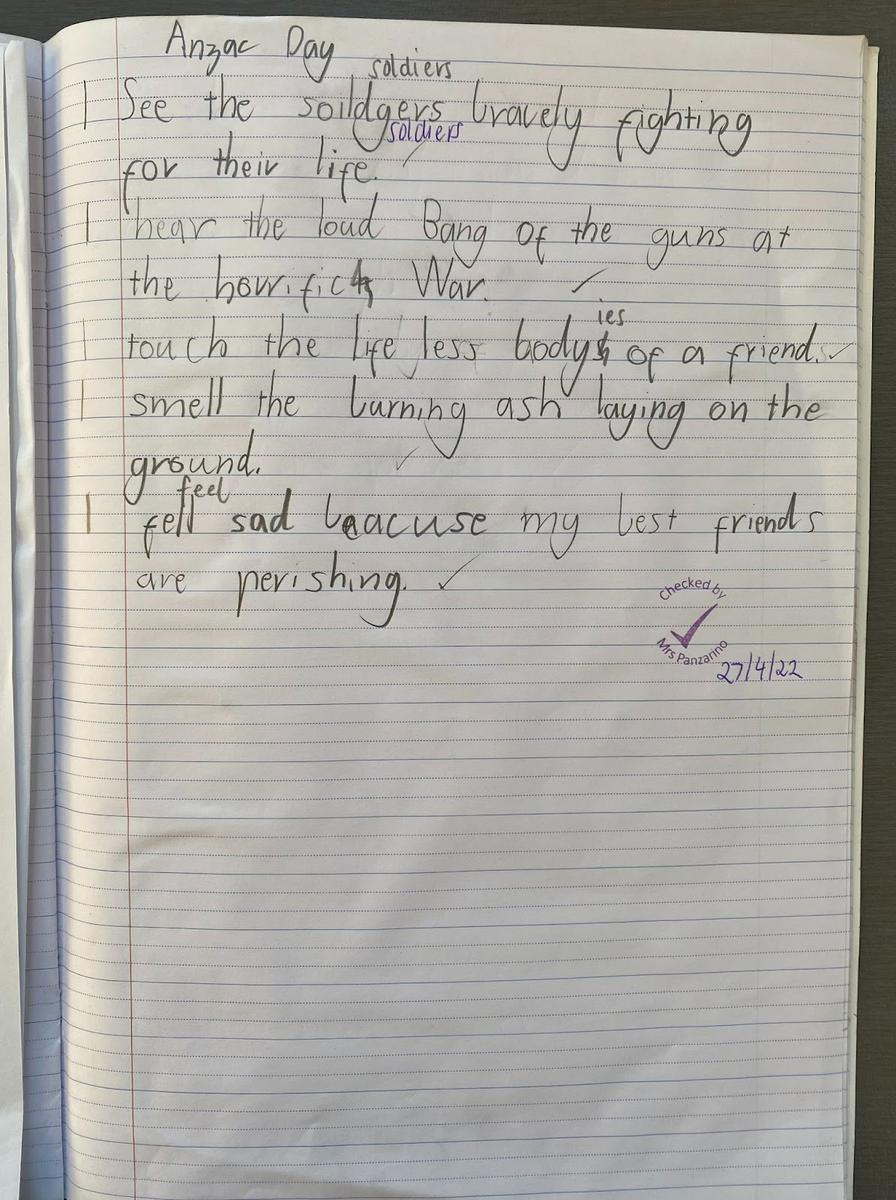 Anzac Day
soldiers
I See the soildgers bravely fighting
soldiers
for their life.
I hear the loud Bang of the guns at
the horrific War.
ies
I touch the life less body of a friend.
I smell the burning ash laying on the
ground.
feel
I fell sad beacuse my best friends
are perishing.
Checked by
Mrs Panzarino
27/4/22